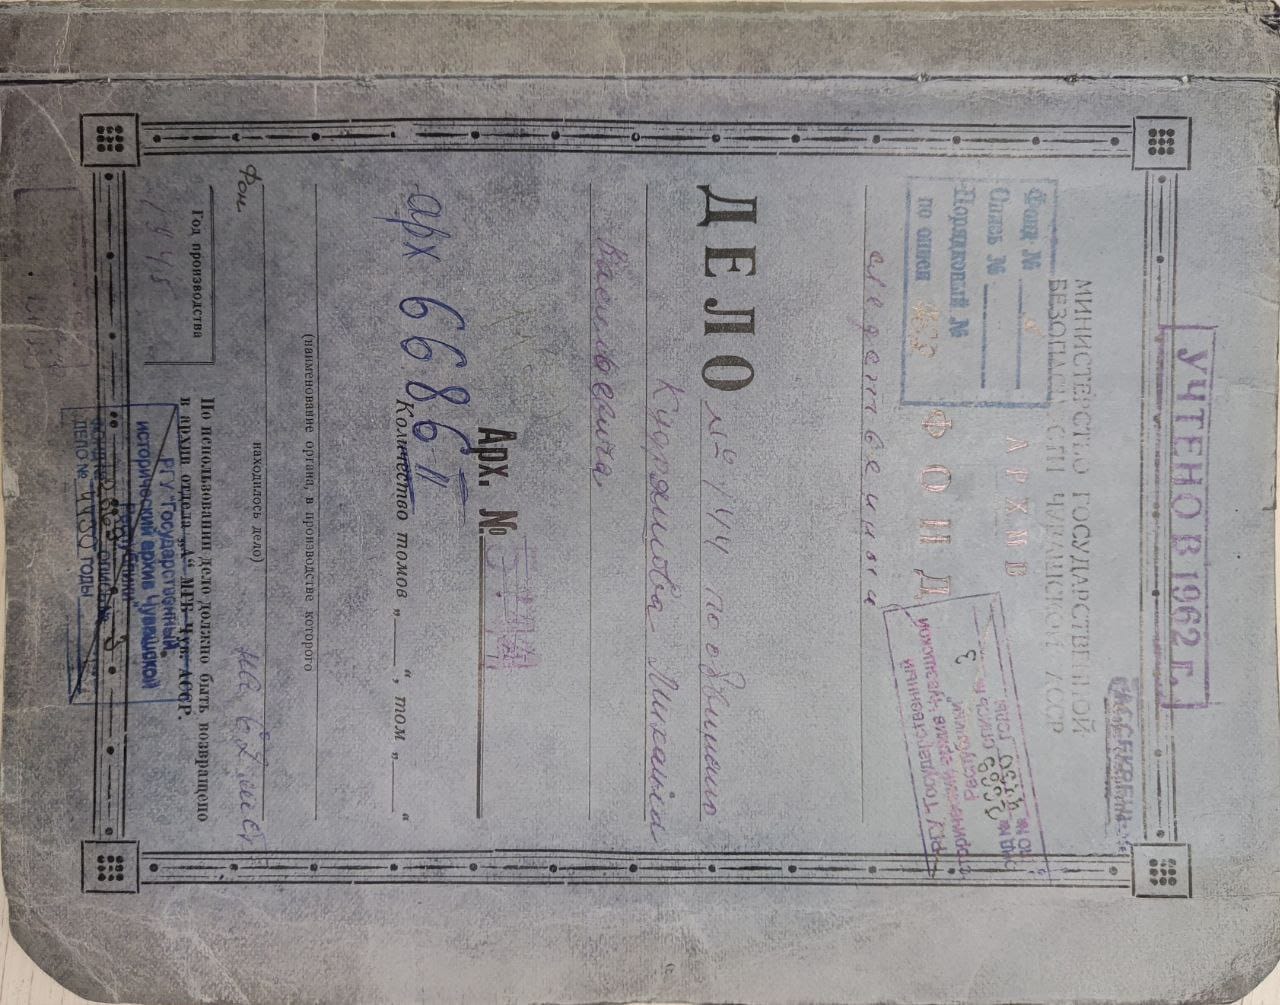 УЧТЕНО В 1962 Г.
РАССЕКРЕЧЕНО
МИНИСТЕРСТВО ГОСУДАРСТВЕННОЙ
БЕЗОПАСНОСТИ ЧУВАШСКОЙ АССР
АРХИВ
ФОНД
Фонд №
Опись №
Порядковый №
по описи
РГУ "Государственный
исторический архив Чувашской
Республики"
ОПИСЬ № 3
ДЕЛО № 4730 ГОДЫ
следственный
ДЕЛО № 744 по обвинению
Кудряшова Михаила
Васильевича
Арх. №
арх 6686
Количество томов „ “, том „ “
(наименование органа, в производстве которого
находилось дело)
Фон
на 62 лист
Год производства
1945
По использовании дело должно быть возвращено
в архив отдела „А“ МГБ Чув. АССР.
РГУ "Государственный
исторический архив Чувашской
Республики"
ОПИСЬ № 3
ДЕЛО № 4730 ГОДЫ